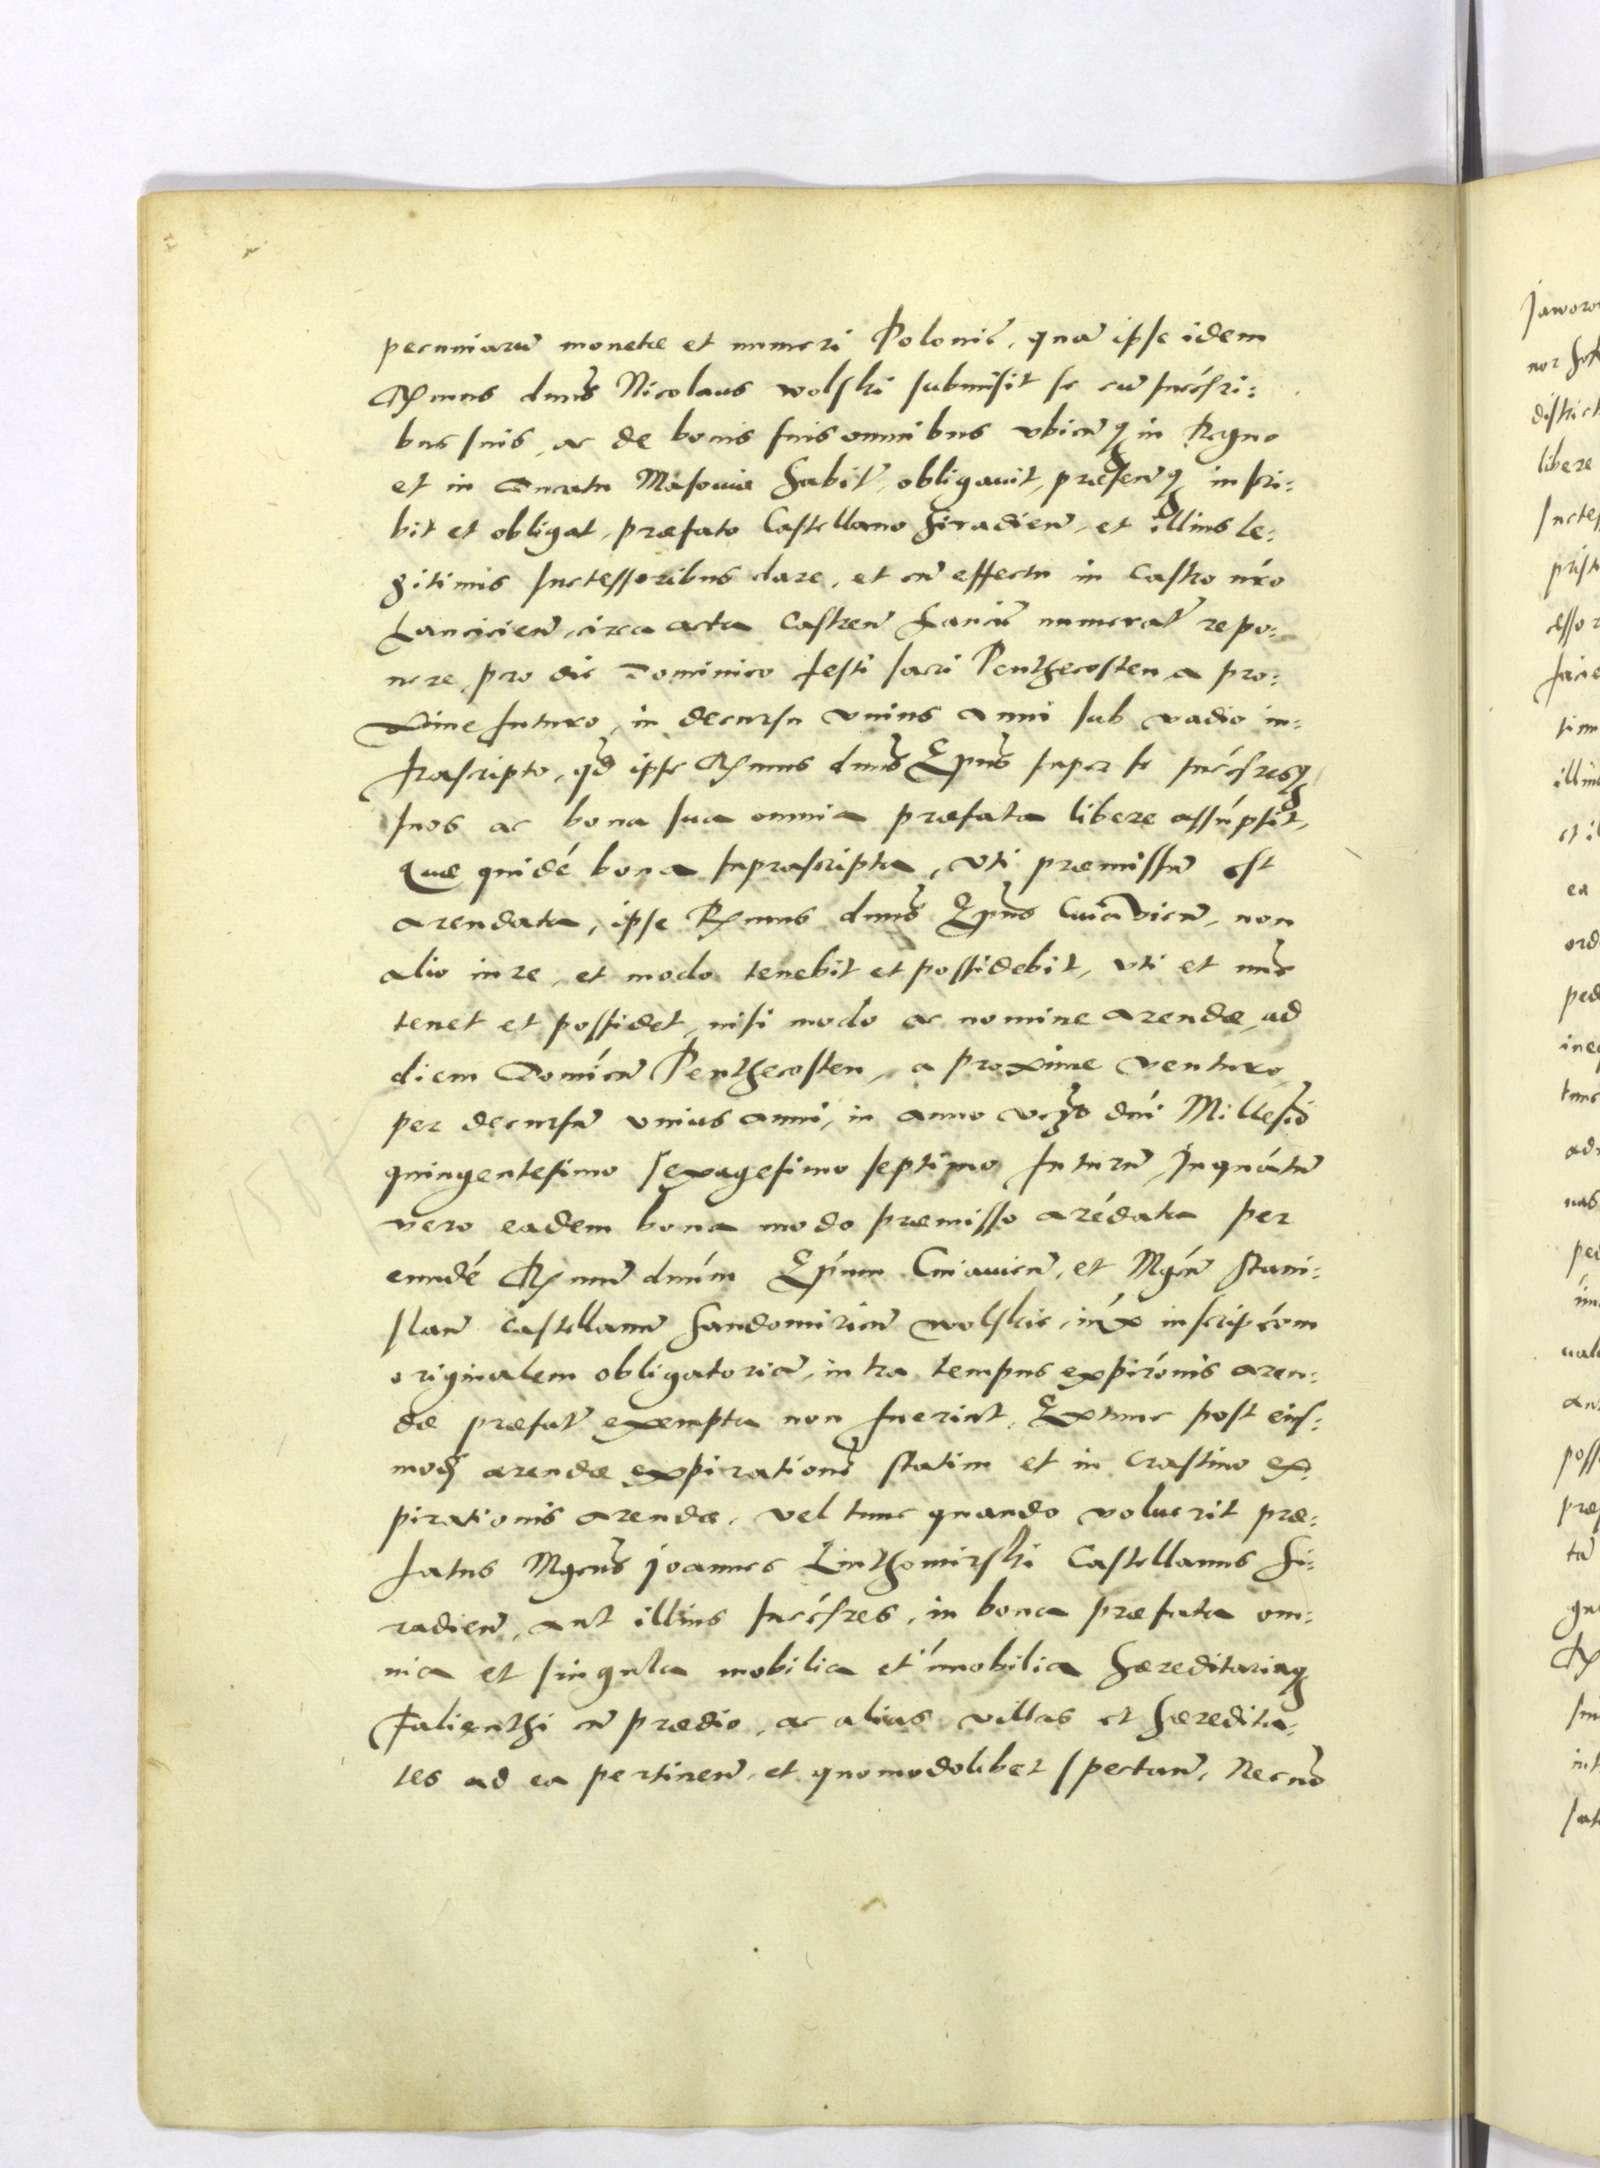 pecuniarũ monetæ et numeri Poloniẽ, quã ipse idem
Rmus dnus Nicolaus wolski submisit se cũ succesri:
bus suis, ac de bonis suis omnibus vbicũq in Regno
et in Ducatu Masoviæ habit, obligauit, præsenq, inscri:
bit et obligat, præfato Castellano Siradien, et illius le:
gitimis successoribus dare, et cũ effectu in castro nro
Lancicien, circa acta castren Lancĩc numerat repo:
nere, pro die Dominico festi sacri Penthecosten, a pro:
xime futuro, in decursu vnius anni sub vadio in:
frascripto, qd ipse Rmus dnus Epus super se succesresq
suos ac bona sua omnia præfata libere assũpsit,
Quæ quidẽ bona suprascripta, vti præmissũ est
arendata, ipse Rmus dnus Epus Cuiavien, non
alio in re, et modo tenebit et possidebit, vti et nunc
tenet et possidet, nisi modo ac nomine arendæ, ad
diem Domicũ Penthecosten, a proxime venturo,
per decursũ vnius anni, in anno vczo dni Millesio
quingentesimo sexagesimo septimo futurũ, Inquãtũ
vero eadem bona modo præmisso arẽdata per
eundẽ Rmum dnum Epum Cuiavien, et Mgcũ Stani:
slaũ Castellanũ Sandomirien wolskie, iux inscripcom
originalem obligatoriã, intra tempus expironis aren:
dæ præfat exempta non fuerint, Extunc post eius:
modi arendæ expirationẽ statim et in crastino ex:
pirationis arendæ, vel tunc quando voluerit præ:
fatus Mgcus Joannes Luthomirski Castellanus Si:
radien, aut illius succesres, in bona præfata om:
nia et singula mobilia et imobilia hæreditariaq
Falienthi cũ prædio, ac alias villas et hæredita:
tes ad ea pertinen, et quomodolibet spectan, Necnõ
1567